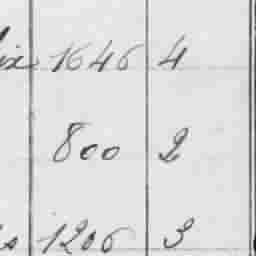 1646 4
800 2
1206 3